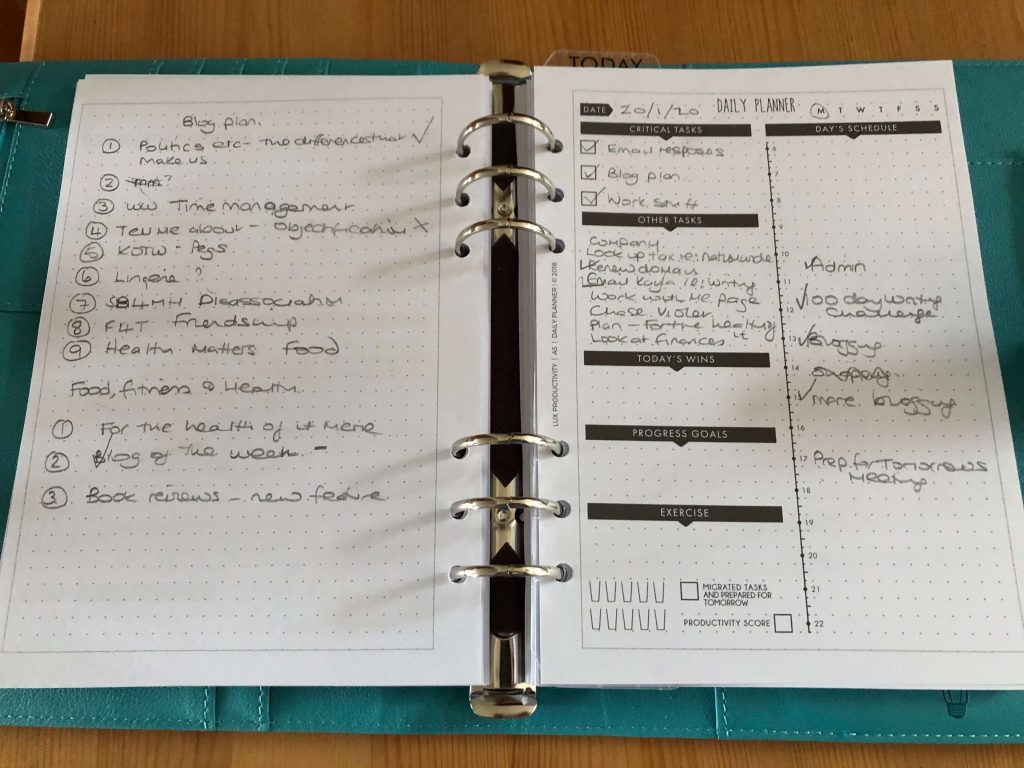 Blog plan.
① Politics etc - The difference that ✓
make us
② mm?
③ ww Time management
④ Tell me about - Objectification X
⑤ KOTW - Pegs
⑥ Lingerie ?
⑦ SB4MH Disassociation
⑧ F4T Friendship
⑨ Health Matters food
Food, fitness & Health.
① For the health of it meme
② Blog of the week -
③ Book reviews - new feature
TODAY
DATE 20/1/20 DAILY PLANNER M T W T F S S
CRITICAL TASKS
Email resposes
Blog plan
Work stuff
OTHER TASKS
Company
Look up tax re: nationwide
Renew domain
Email Kayla re: writing
Work with me page
Chase Violet
Plan - For the healthy
Look at finances it
TODAY'S WINS
PROGRESS GOALS
EXERCISE
MIGRATED TASKS
AND PREPARED FOR
TOMORROW
PRODUCTIVITY SCORE
DAY'S SCHEDULE
6
7
8
9
10
Admin
11
100 day writing
12
Challenge
13
Blogging
14
Shopping
more blogging
16
17
Prep for Tomorrows
Meeting
18
19
20
21
22
LUX PRODUCTIVITY | A5 | DAILY PLANNER | © 2018